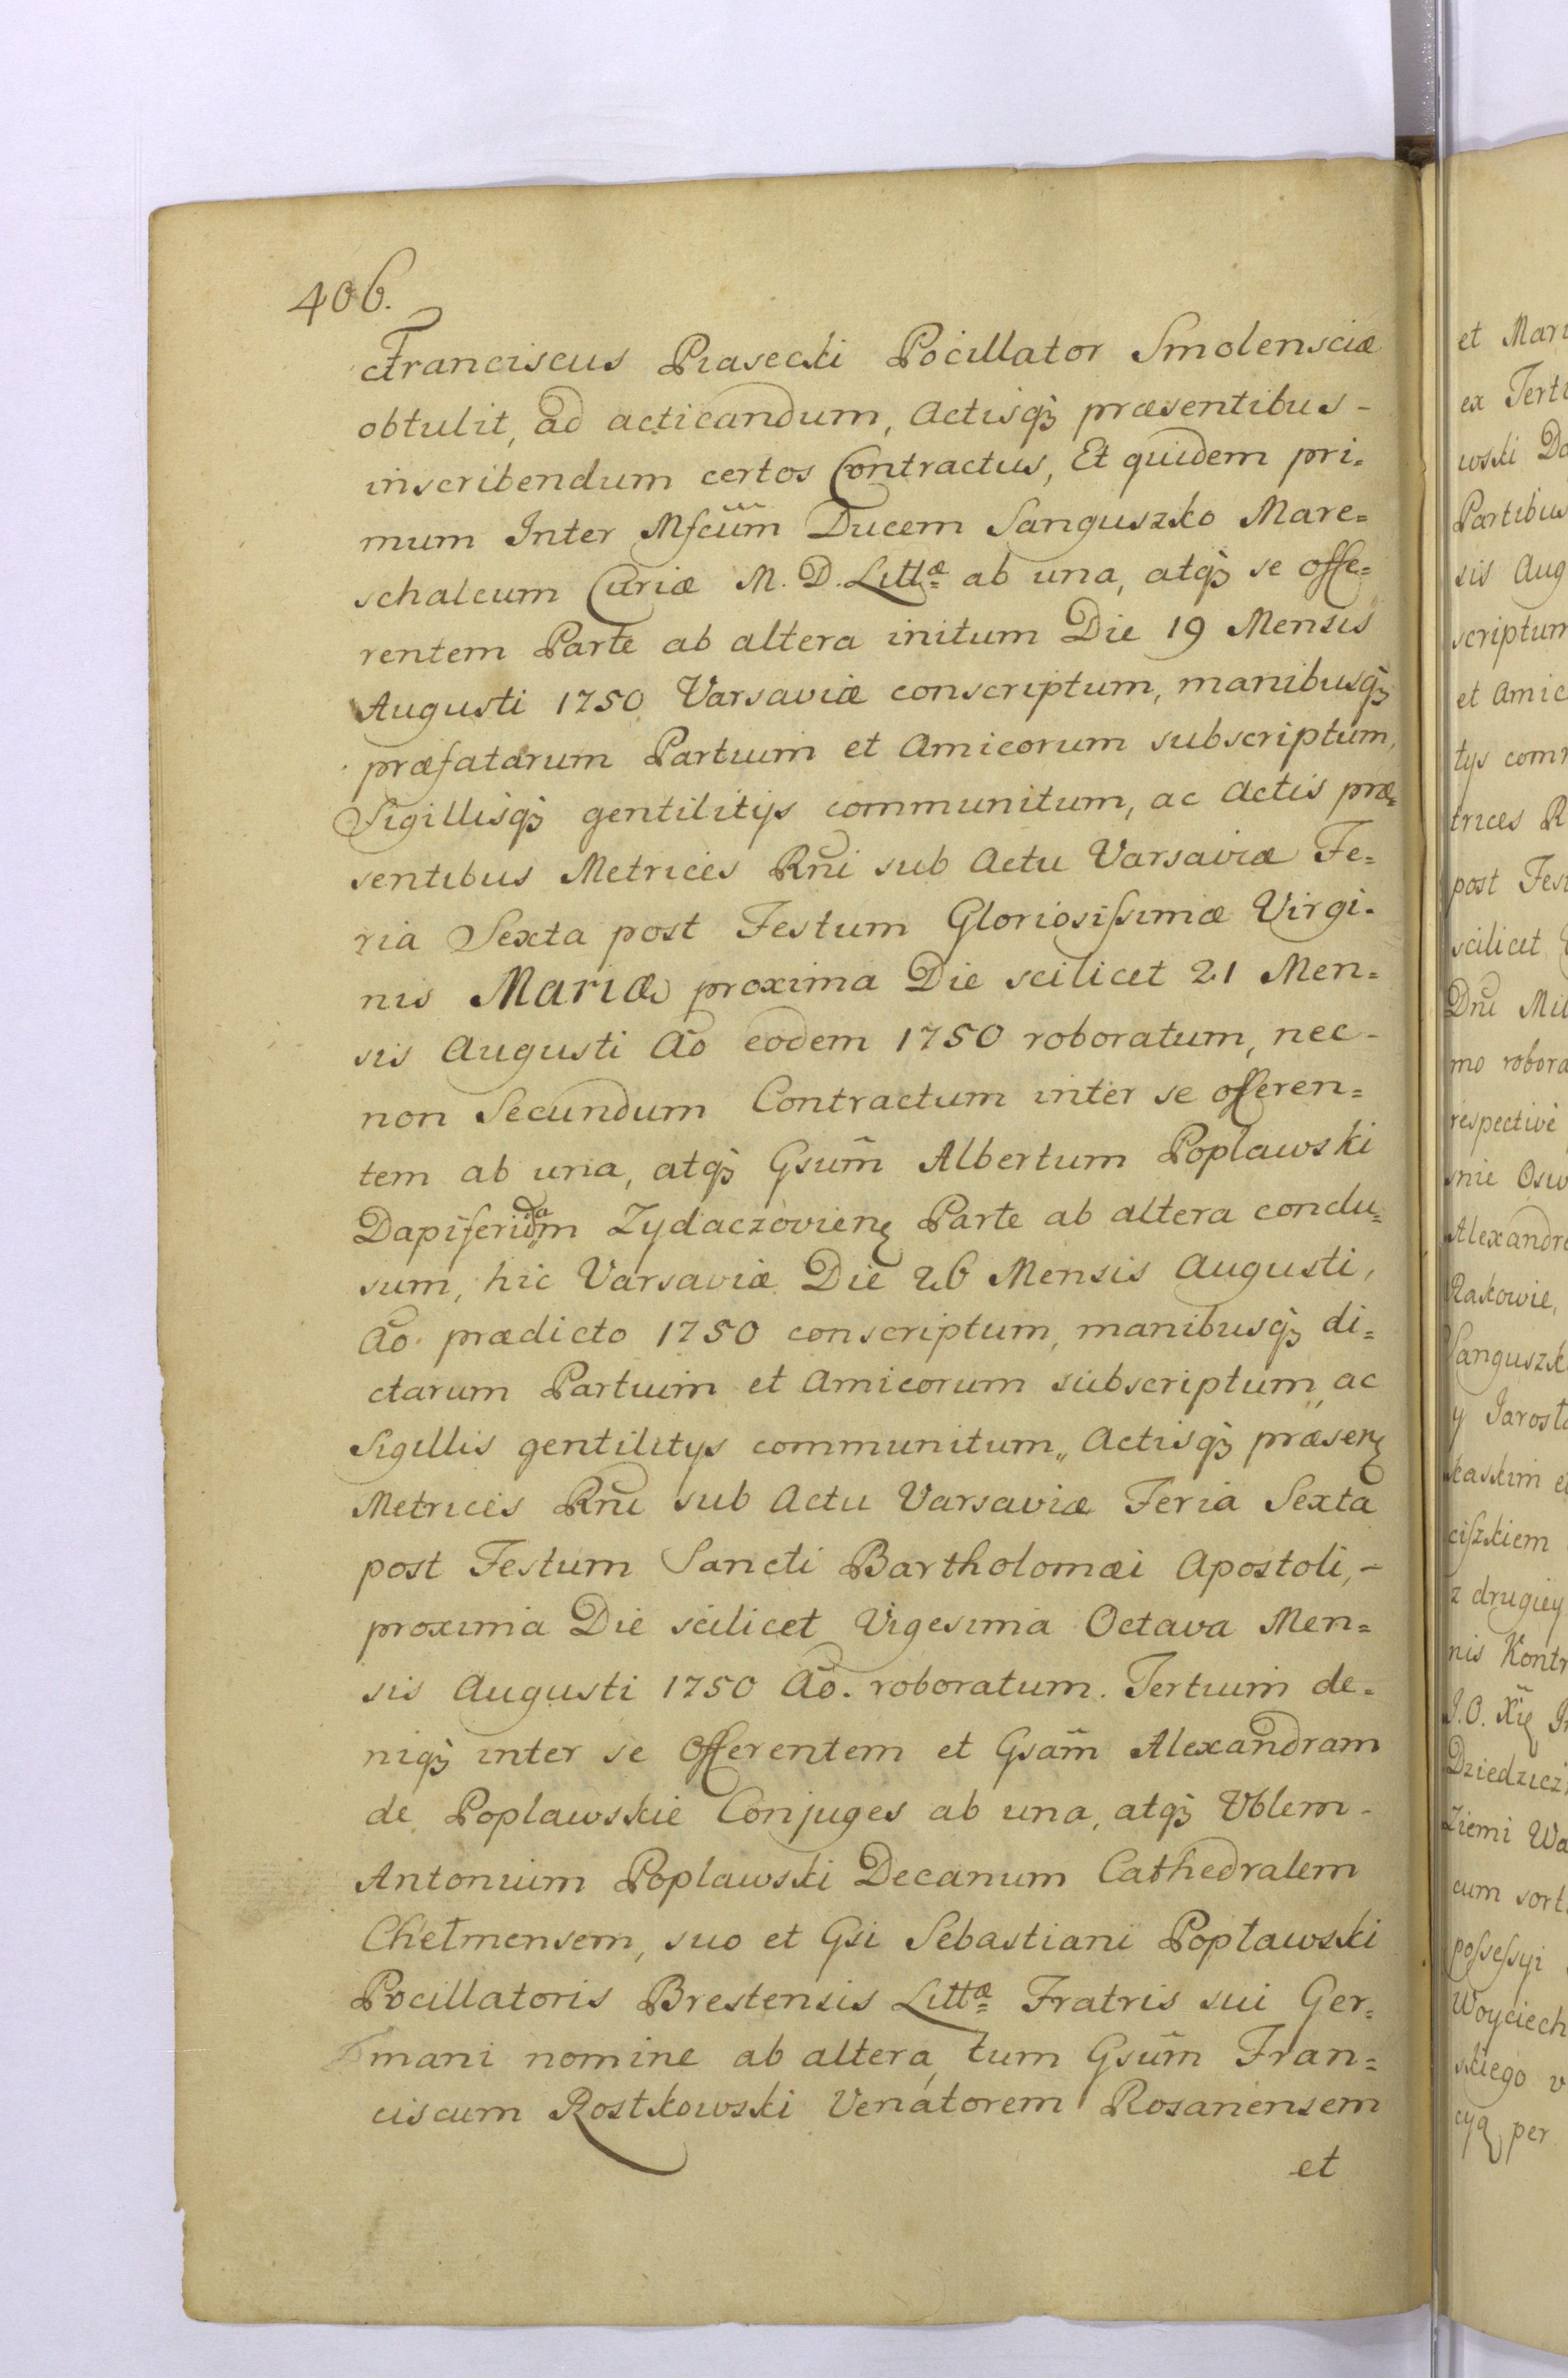 406.
Franciscus Piasecki Pocillator Smolensciæ
obtulit, ad acticandum, Actisq3 præsentibus -
inscribendum certos Contractus, Et quidem pri=
mum Inter Mfcum̃ Ducem Sanguszko Mare=
schalcum Curiæ M. D. Littæ ab una, atq3 se offe=
rentem Parte ab altera initum Die 19 Mensis
Augusti 1750 Varsaviæ conscriptum, manibusq3
præfatarum Partium et Amicorum subscriptum,
Sigillisq3 gentilitijs communitum, ac Actis præ=
sentibus Metrices Rñi sub Actu Varsaviæ Fe=
ria Sexta post Festum Gloriosissimæ Virgi=
nis Mariæ proxima Die scilicet 21 Men=
sis Augusti Aõ eodem 1750 roboratum, nec -
non Secundum Contractum inter se offeren=
tem ab una, atq3 Gsum̃ Albertum Poplawski
Dapiferidam Zydaczovien Parte ab altera conclu=
sum, hic Varsaviæ Die 26 Mensis Augusti,
Aõ. prædicto 1750 conscriptum, manibusq3 di=
ctarum Partium et Amicorum subscriptum, ac
Sigillis gentilitijs communitum, Actisq3 præsen
Metrices Rñi sub Actu Varsaviæ Feria Sexta
post Festum Sancti Bartholomæi Apostoli, -
proxima Die scilicet Vigesima Octava Men=
sis Augusti 1750 Aõ. roboratum. Tertium de=
niq3 inter se Offerentem et Gsam̃ Alexandram
de Poplawskie Conjuges ab una, atq3 Vblem -
Antonium Poplawski Decanum Cathedralem
Chełmensem, suo et Gsi Sebastiani Popławski
Pocillatoris Brestensis Littæ Fratris sui Ger=
mani nomine ab altera, tum Gsum̃ Fran=
ciscum Rostkowski Venatorem Rosanensem
et
et Mari
ex Terti
wski Da
Partibus
sis Aug
scriptum
et Amic
tijs comm
trices R
post Fes
scilicet
Dni Mil
mo robora
respective
Alexandr
Rakowie,
Sanguszk
y Jarosł
z drugiey
nis Kontr
Ziemi Wa
cum sort
possessyi
Woyciech
skiego
per